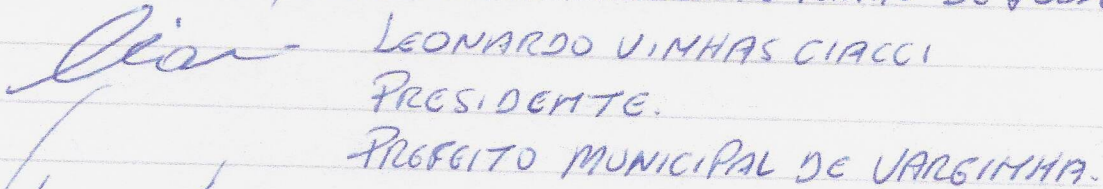 LEONARDO VINHAS CIACCI
PRESIDENTE.
PREFEITO MUNICIPAL DE VARGINHA.